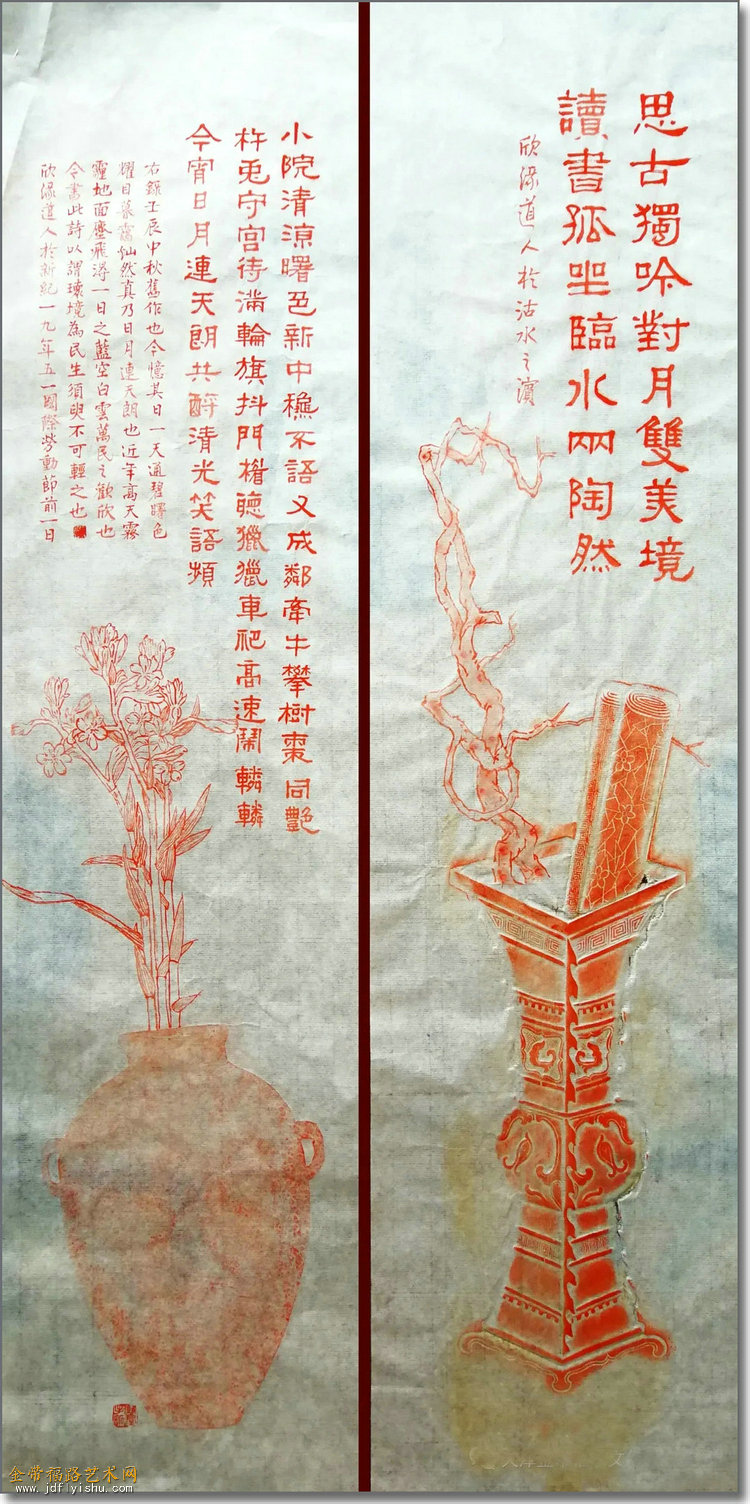 思古獨吟對月雙美境
讀書孤坐臨水兩陶然
欣緣道人於沽水之濱
小院清涼曙色新中穐不語又成鄰牽牛攀樹棗同艷
杵兎守宮待滿輪旗抖門楷聴獵獵車祀高速鬧轔轔
今宵日月連天朗共酹清光笑語頻
右錄壬辰中秋舊作也今憶其日一天通碧曙色
耀目暮靄仙然真乃日月連天朗也近年高天霧
霾地面塵飛淂一日之藍空白雲萬民之歡欣也
今書此詩以謂環境為民生須臾不可輕之也
欣緣道人於新紀一九年五一國際勞動節前一日
金带福路艺术网
www.jdflyishu.com